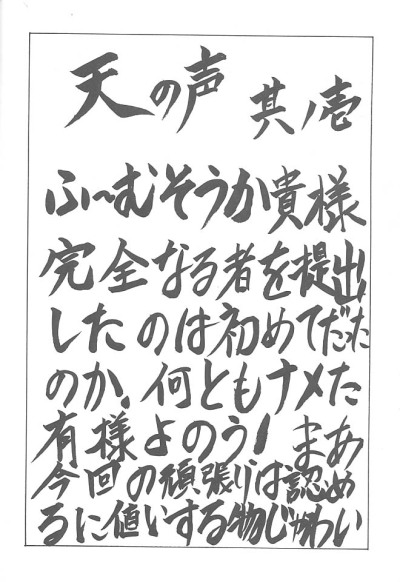 天の声 其ノ壱
ふ～むそうか貴様
完全なる者を提出
したのは初めてだった
のか、何ともナメた
有様よのう! まあ
今回の頑張りは認め
るに値いする物じゃわい